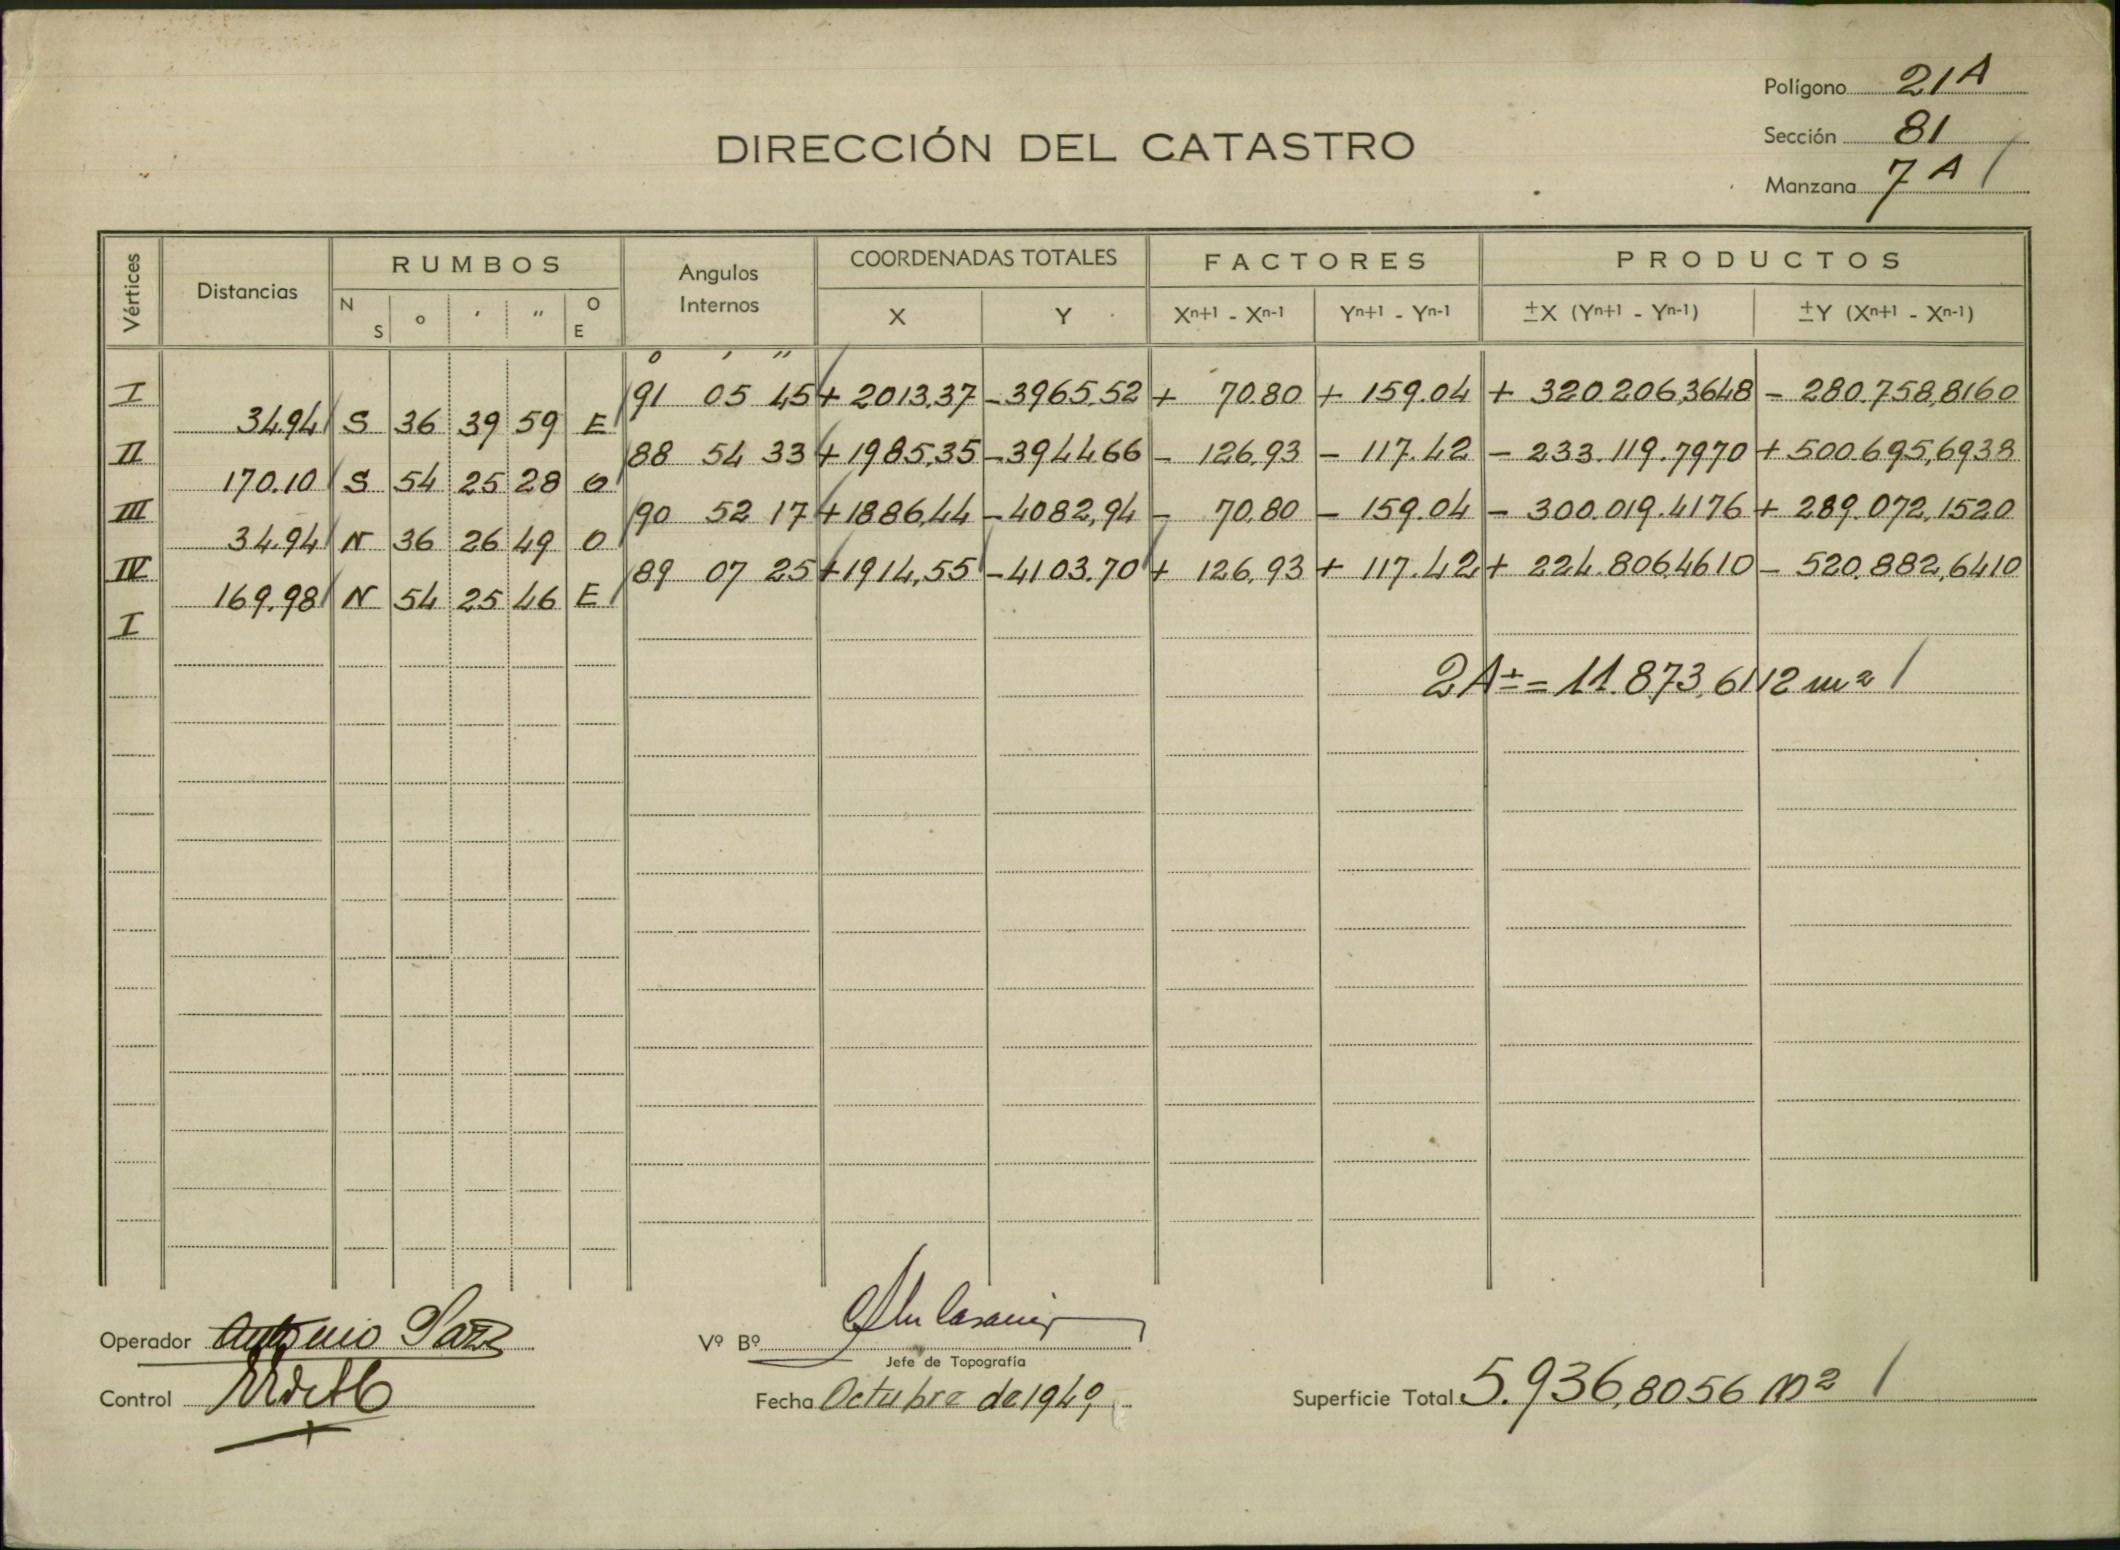 Polígono 21 A
DIRECCIÓN DEL CATASTRO
Sección 81
Manzana 7 A
Vértices Distancias RUMBOS Angulos Internos COORDENADAS TOTALES FACTORES PRODUCTOS
N S o ' " O E X Y Xn+1 - Xn-1 Yn+1 - Yn-1 ±X (Yn+1 - Yn-1) ±Y (Xn+1 - Xn-1)
o ' "
I 91 05 45 + 2013,37 - 3965.52 + 70.80 + 159.04 + 320.206,3648 - 280.758,8160
34.94 S 36 39 59 E
II 88 54 33 + 1985,35 - 3944.66 - 126.93 - 117.42 - 233.119.7970 + 500.695,6938
170.10 S 54 25 28 O
III 90 52 17 + 1886,44 - 4082,94 - 70.80 - 159.04 - 300.019.4176 + 289.072,1520
34.94 N 36 26 49 O
IV 89 07 25 + 1914,55 - 4103.70 + 126,93 + 117.42 + 224.806,4610 - 520.882,6410
169.98 N 54 25 46 E
I
2A± = 11.873,6112 m2
Operador Antonio
Vº Bº
Jefe de Topografía
Control
Fecha Octubre de 1949
Superficie Total 5.936,8056 m2